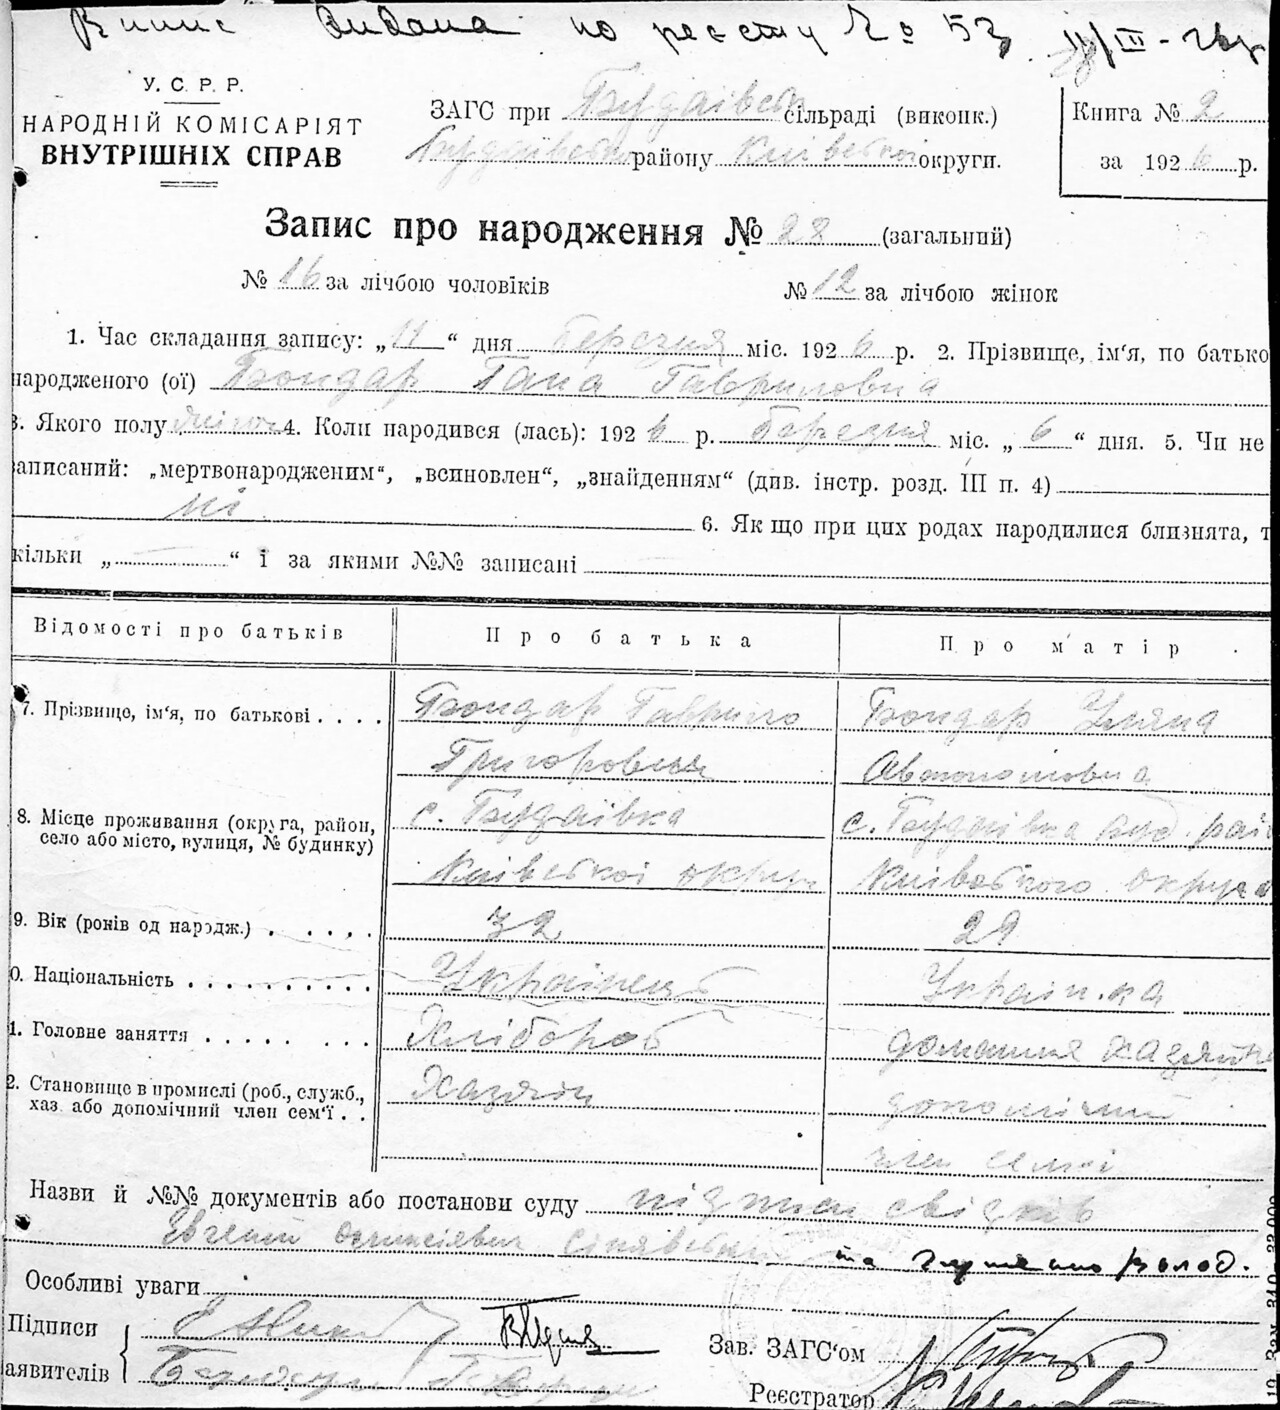 Випис видана по реєсту № 53 11/III-26р
У. С. Р. Р.
НАРОДНІЙ КОМІСАРІЯТ
ВНУТРІШНІХ СПРАВ
ЗАГС при Будаівськ сільраді (виконк.)
Будаівськ району Київської округи.
Книга № 2
за 1926 р.
Запис про народження № 28 (загальний)
№ 16 за лічбою чоловіків
№ 12 за лічбою жінок
1. Час складання запису: „11“ дня березня міс. 1926 р. 2. Прізвище, ім‘я, по батько
народженого (ої) Бондар Гана Гавриловна
3. Якого полу жіноч 4. Коли народився (лась): 1926 р. Березня міс. „6“ дня. 5. Чи не
записаний: „мертвонародженим“, „всиновлен“, „знайденням“ (див. інстр. розд. III п. 4)
ні 6. Як що при цих родах народилися близнята, т
кільки „ “ і за якими №№ записані
Відомості про батьків
Про батька
Про матір
7. Прізвище, ім‘я, по батькові
Бондар Гаврило
Григорович
Бондар Уляна
Автономовна
8. Місце проживання (округа, район,
село або місто, вулиця, № будинку)
с. Будаівка
Київської округи
с. Будаівка Буд. рай
Київського округа
9. Вік (років од народж.)
32
29
0. Національність
Українець
Україн.ка
1. Головне заняття
Хлібороб
домашня хазяйка
2. Становище в промислі (роб., служб.,
хаз. або допомічний член сем‘ї
Хазяїн
допомічний
член семьї
Назви й №№ документів або постанови суду підписи свідків
Евгений сінявський та волод.
Особливі уваги
Підписи
аявителів
Зав. ЗАГС‘ом
Реєстратор